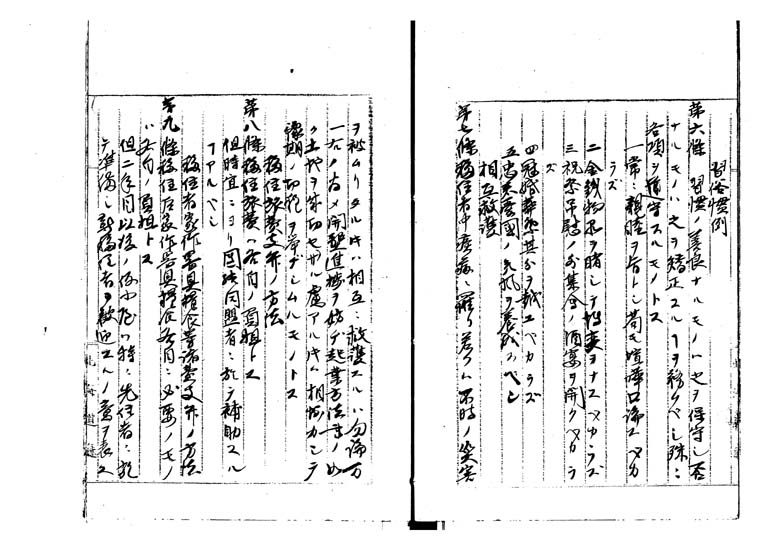 習俗慣例
第六條 習慣ノ善良ナルモノハ之ヲ保守シ否
ナルモノハ之ヲ矯正スルヿヲ務ムベシ殊ニ
各項ヲ遵守スルモノトス
一常ニ親睦ヲ旨トシ苟モ喧嘩口論スベカ
ラズ
二金錢物品ヲ賭シテ博奕ヲナスベカラズ
三祝祭弔慰ノ外集會ノ酒宴ヲ開クベカラ
ズ
四冠婚葬祭其分ヲ越エベカラズ
五忠君愛國ノ気風ヲ養成スベシ
相互救護
第七條移住者中疾病ニ罹リ若クハ不時ノ災害
ヲ被ムリタル片ハ相互ニ救護スルハ勿論万
一右ノ為メ開墾進捗ヲ妨ゲ起業方法書ノ如
ク土地ヲ成功セザル虞アル片ハ相協力シテ
豫期ノ功程ヲ挙ゲシムルモノトス
移住旅費支弁ノ方法
第八條移住旅費ハ各自ノ負担トス
但時宜ニヨリ団結同盟者ニ於テ補助スル
ヿアルベシ
移住者家作器具糧食等諸費支弁ノ方法
第九條移住后家作器具糧食各自ニ必要ノモノ
ハ各自ノ負担トス
但二年目以後ノ移住民ハ特ニ先住者ニ於
テ準備シ新移住者ヲ歓迎スルノ意ヲ表ス
北海道廳